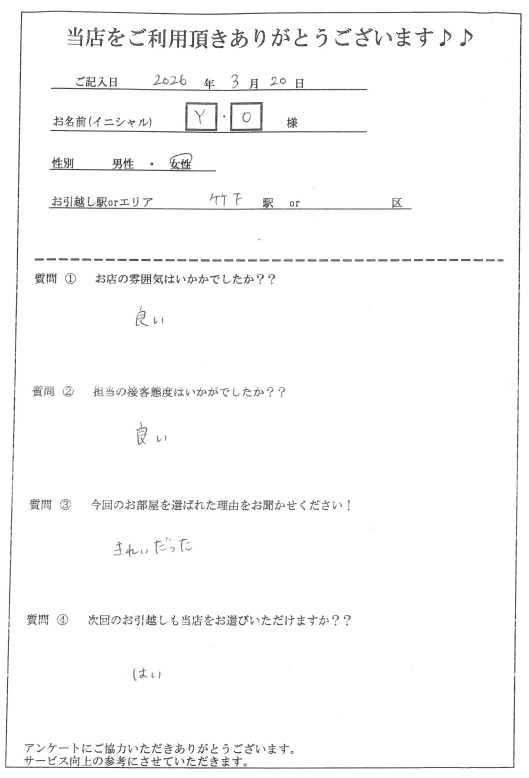 当店をご利用頂きありがとうございます♪♪
ご記入日 2026 年 3 月 20 日
お名前(イニシャル) Y・O 様
性別 男性 ・ 女性
お引越し駅orエリア 竹下 駅 or 区
質問 ① お店の雰囲気はいかかでしたか??
良い
質問 ② 担当の接客態度はいかがでしたか??
良い
質問 ③ 今回のお部屋を選ばれた理由をお聞かせください!
きれいだった
質問 ④ 次回のお引越しも当店をお選びいただけますか??
はい
アンケートにご協力いただきありがとうございます。
サービス向上の参考にさせていただきます。